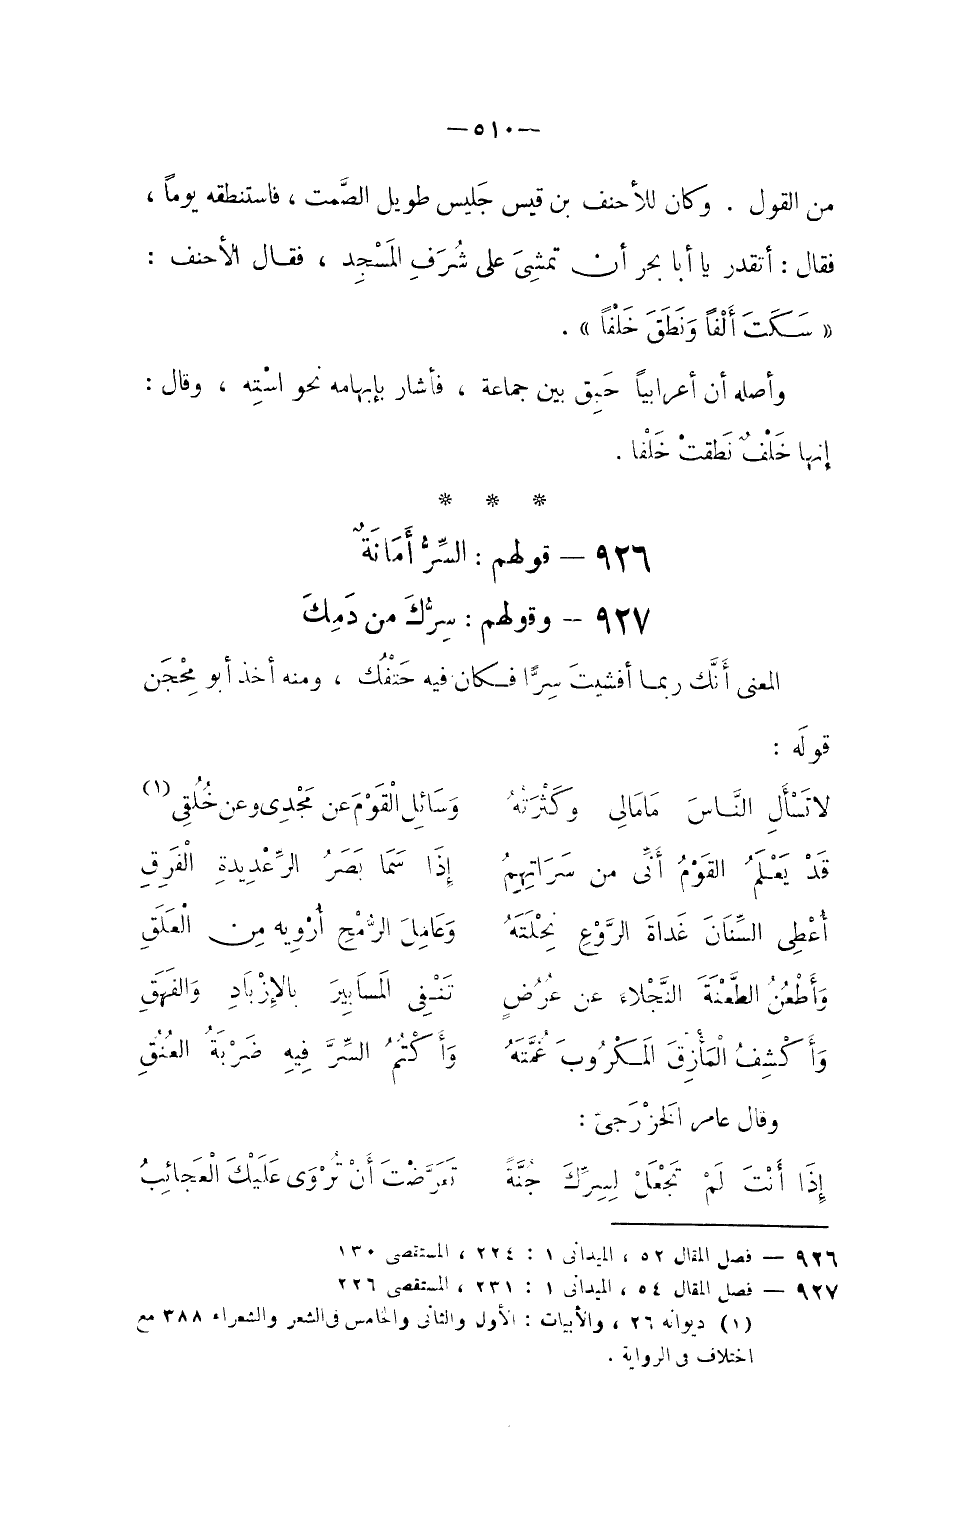 —٥١٠—
من القول . وكان للأحنف بن قيس جَليس طويل الصَّمت ، فاستنطقه يوماً ،
فقال : أتقدر يا أبا بحر أن تمشِىَ على شُرَفِ المَسْجِد ، فقال الأحنف :
« سَكَتَ أَلْفاً وَنَطَقَ خَلْفاً » .
وأصله أن أعرابياً حَبِق بين جماعة ، فأشار بإبهامه نحو اسْتِه ، وقال :
إنها خَلْفٌ نَطَقتْ خَلْفا .
* * *
٩٢٦ — قولهم : السِّرُّ أَمَانَةٌ
٩٢٧ — وقولهم : سِرُّكَ من دَمِكَ
المعنى أَنَّك ربما أفشيتَ سِرًّا فكان فيه حَتْفُك ، ومنه أخذ أبو مِحْجَن
قولَه :
لا تَسْأَلِ النَّاسَ مَا مَالِى وَكَثْرَتُهُ وَسَائِلِ الْقَوْمَ عن مَجْدِى وعن خُلُقِى (١)
قَدْ يَعْلَمُ القَوْمُ أَنِّى من سَرَاتِهِمُ إِذَا سَمَا بَصَرُ الرِّعْدِيدةِ الْفَرِقِ
أُعْطِى السِّنَانَ غَداةَ الرَّوْعِ نِحْلَتَهُ وَعَامِلَ الرُّمْحِ أُرْوِيه مِن الْعَلَقِ
وَأَطْعُنُ الطَّعْنَةَ النَّجْلاءَ عن عُرُضٍ تَنْفِى المَسَابِيرَ بالإِزْبَادِ وَالفَهَقِ
وَأَكْشِفُ الْمَأْزِقَ المَكْرُوبَ غُمَّتَهُ وَأَكْتُمُ السِّرَّ فِيهِ ضَرْبَةُ العُنُقِ
وقال عامر الخَزْرَجىّ :
إِذَا أَنْتَ لَمْ تَجْعَلْ لِسِرِّكَ جُنَّةً تَعَرَّضْتَ أَنْ تُرْوَى عَلَيْكَ الْعَجائِبُ
٩٢٦ — فصل المقال ٥٢ ، الميدانى ١ : ٢٢٤ ، المستقصى ١٣٠
٩٢٧ — فصل المقال ٥٤ ، الميدانى ١ : ٢٣١ ، المستقصى ٢٢٦
(١) ديوانه ٢٦ ، والأبيات : الأول والثانى والخامس فى الشعر والشعراء ٣٨٨ مع
اختلاف فى الرواية .